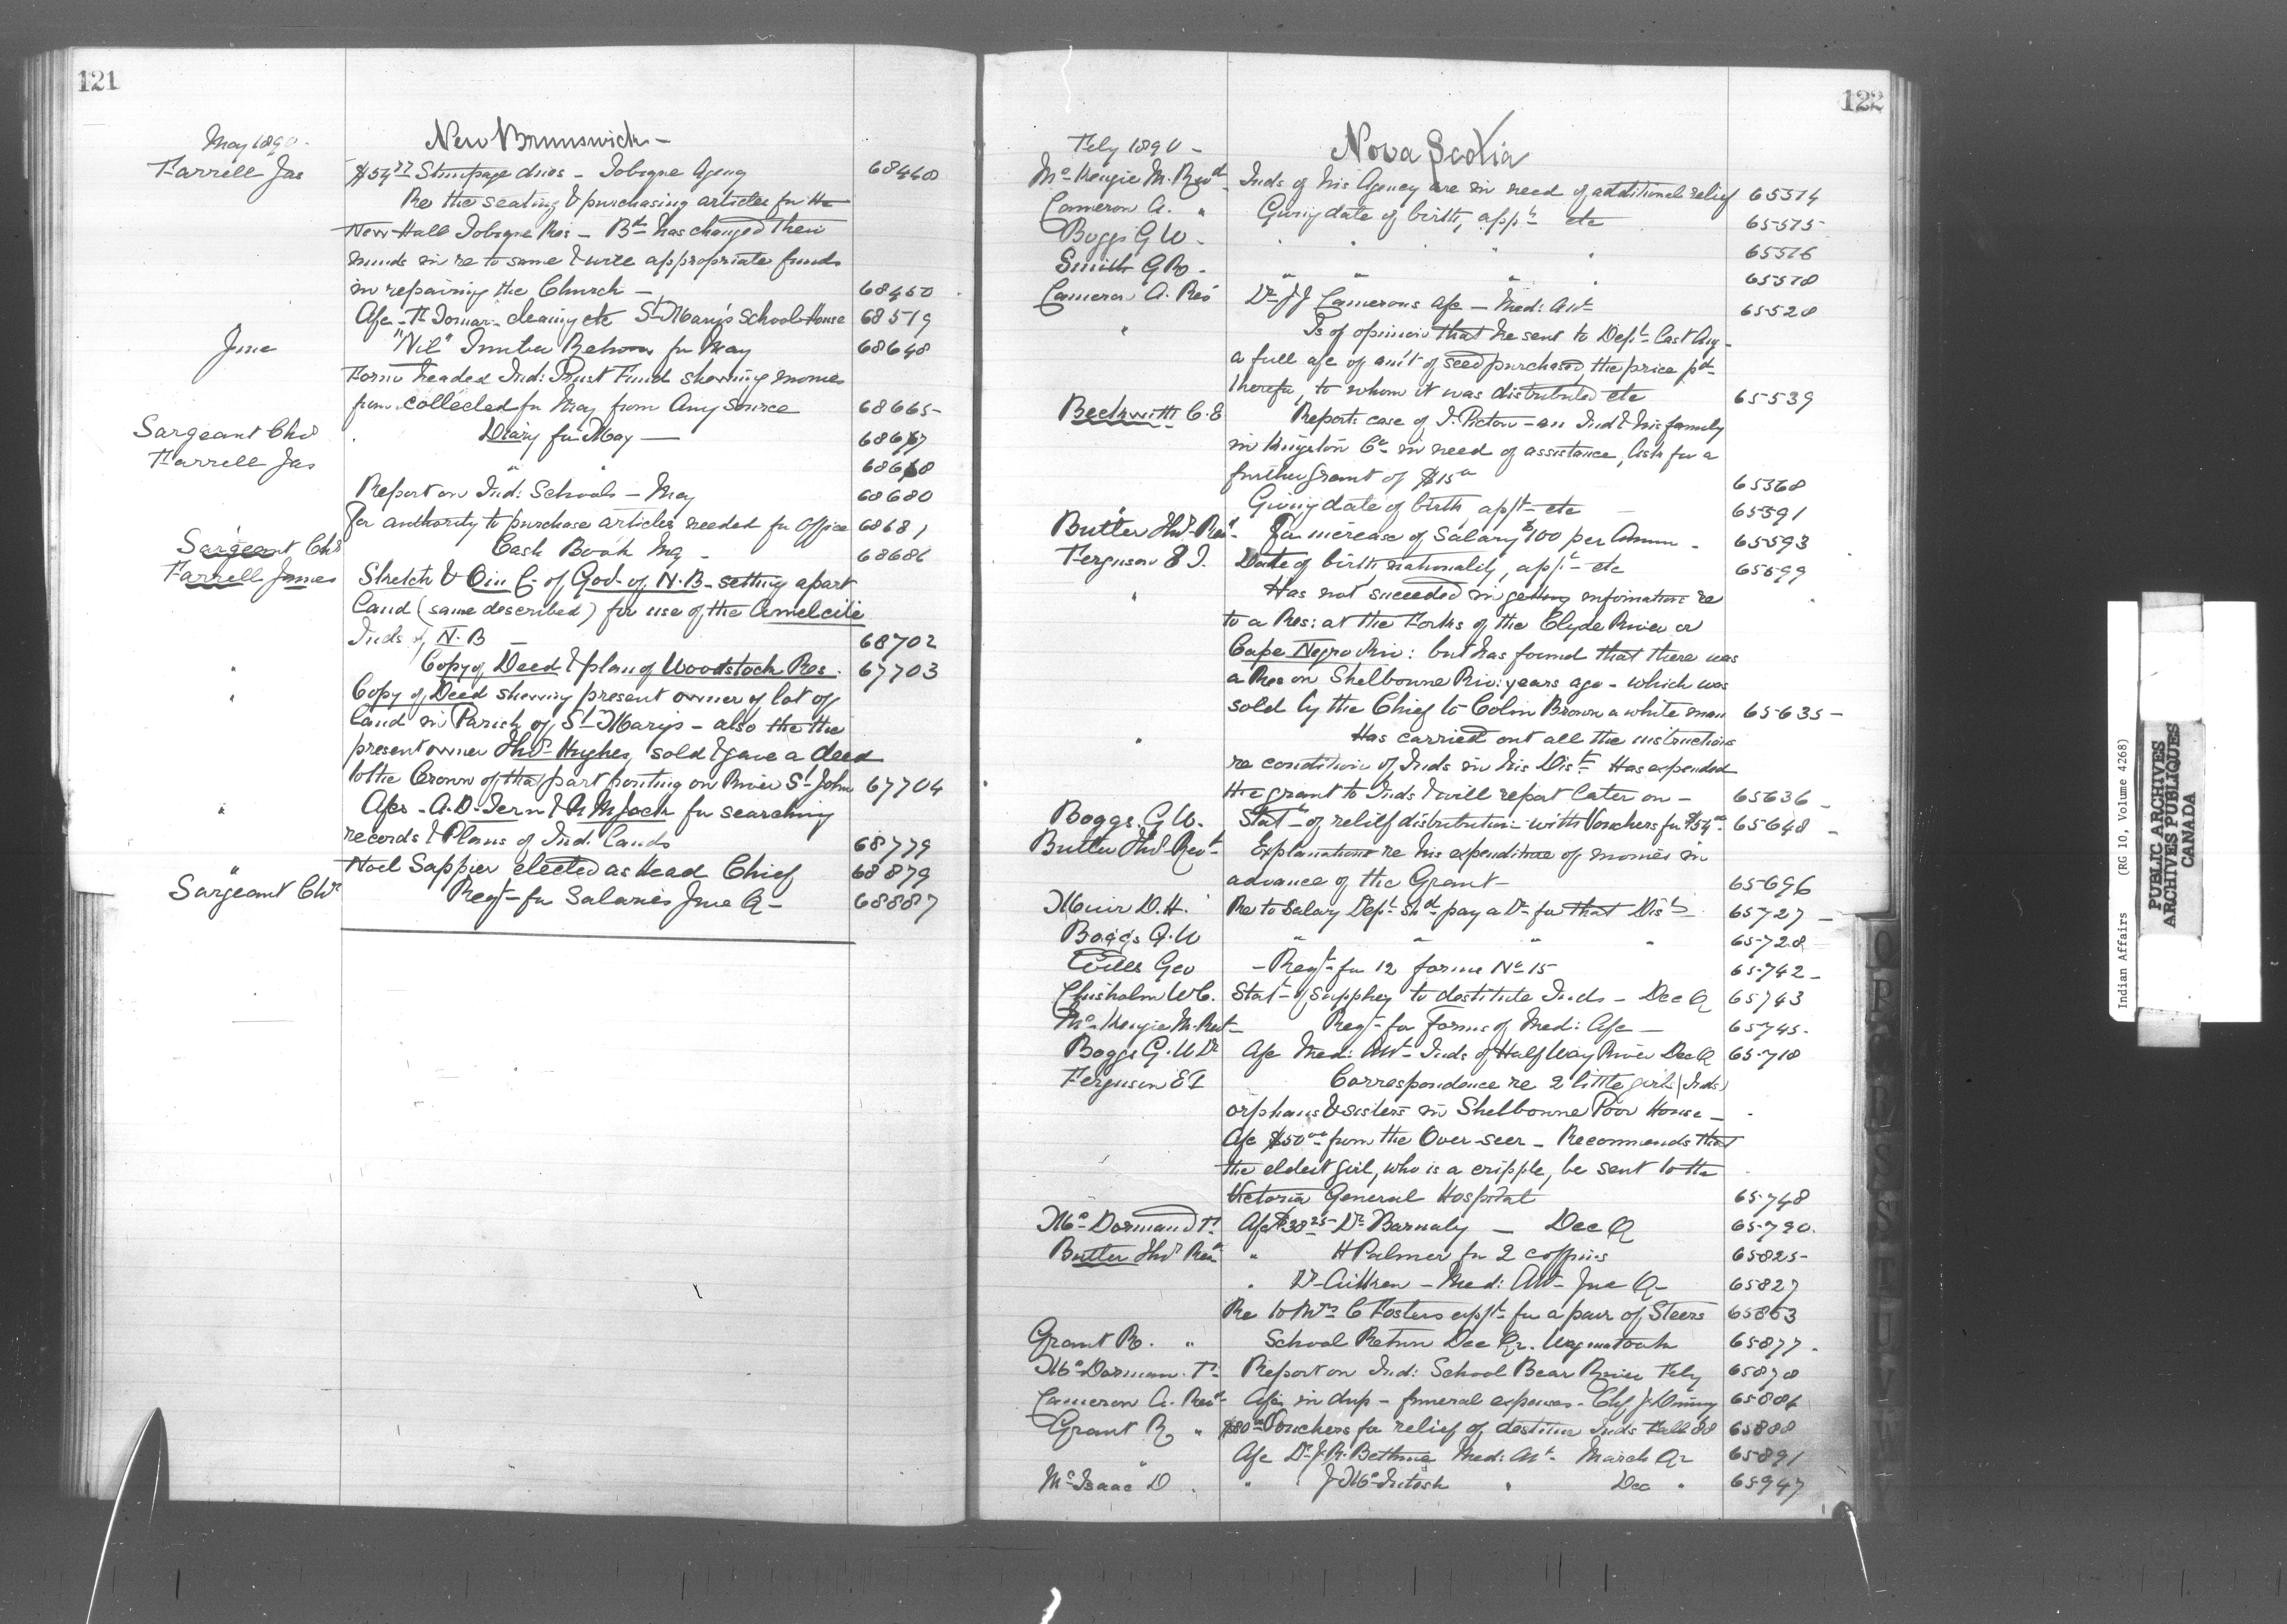 121
New Brunswick -
May 1890 -
Farrell Jas $54.77 Stumpage dues - Tobique Agency 68440
Re the seating & purchasing articles for the
New Hall Tobique Res - Bd has changed their
minds in re to same & will appropriate funds
in repairing the Church - 68450
A/c - F. Tomar - cleaning etc St Mary's School House 68519
June "Nil" Timber Return for May 68648
Form headed Ind: Trust Fund showing monies
collected for May from Any Source 68665
Sargeant Chs Diary for May - 68667
Farrell Jas " " 68668
Report on Ind: Schools - May 68680
For authority to purchase articles needed for Office 68681
Sargeant Chs Cash Book Mg - 68686
Farrell James Sketch & Oin C. of God. of N.B. setting apart
Land (same described) for use of the Amelcite
Inds of N.B - 68702
" Copy of Deed & plan of Woodstock Res. 67703
" Copy of Deed showing present owner of lot of
land in Parish of St Marys - also the the
present owner Thos Hughes, sold & gave a deed
to the Crown of that part fronting on River St John 67704
" A/cs - A.D. for searching
records & Plans of Ind. Lands 68779
" Noel Sappier elected as Head Chief 68879
Sargeant Chs Reqt for Salaries June Q - 68887
122
Nova Scotia
Feby 1890 -
McKenzie M. Revd Inds of his Agency are in need of additional relief 65514
Cameron A. " Giving date of birth, appt etc 65575
Boggs G W. " " " " 65516
Smith G R. " " " " 65518
Cameron A. Rev Dr J J Camerons a/c - Med: Att 65528
" Is of opinion that he sent to Dept. last Aug
a full a/c of amt of seed purchased, the price pd
therefor, to whom it was distributed etc 65539
Beckwith C. E Reports case of J. Picton - an Ind & his family
in Kingston Co in need of assistance, Asks for a
further grant of $15.00 65368
" Giving date of birth appt - etc 65591
Butler Thos Revd For increase of Salary $100 per Annum - 65593
Ferguson E I. Date of birth, nationality, appt - etc 65599
" Has not succeeded in getting information re
to a Res: at the Forks of the Clyde River or
Cape Negro Riv: but has found that there was
a Res on Shelbourne Riv: years ago - which was
sold by the Chief to Colin Brown a white man 65635 -
" Has carried out all the instructions
re condition of Inds in his Dist. Has expended
the grant to Inds & will report later on - 65636 -
Boggs. G. W. Statt of relief distribution with Vouchers for $54.00 65648 -
Butler Thos Revd Explanations re his expenditure of monies in
advance of the Grant - 65696
Muir D. H. Re to Salary Dept. shd pay a Dr for that Dist 65727 -
Boggs G. W " " " " 65728
Wells Geo - Reqt for 12 forms No 15 65742 -
Chisholm W C. Statt of supplies to destitute Inds - Dec Q 65743
McKenzie M. Revd - Reqt for forms of Med: A/c - 65745 -
Boggs G. W Dr A/c Med: Att - Inds of Half Way River Dec Q 65718
Ferguson E I Correspondence re 2 little girls (Inds)
orphans & sisters in Shelbourne Poor House -
A/c $50.00 from the Over-seer - Recommends that
the eldest girl, who is a cripple, be sent to the
Victoria General Hospital 65748
McDormand T. A/c $38.25 - Dr Barnaby - Dec Q 65790.
Butler Thos Revd " H Palmer for 2 coffins 65825 -
" Dr Aitken - Med: Att - June Q - 65827
Re to Mrs C Fosters appt for a pair of Steers 65853
Grant R. " School Return Dec Qr. 65877
McDorman. T. Report on Ind: School Bear River Feby 65878
Cameron A. Revd A/c in dup - funeral expenses - 65886
Grant R " $80.00 Vouchers for relief of destitute Inds Fall 88 65888
" A/c Dr J. R. Bethune Med: Att. March Qr 65891
McIsaac D. " J McIntosh " Dec " 65947
O
P
Q
R
S
T
U
V
W
Indian Affairs (RG 10, Volume 4268)
PUBLIC ARCHIVES
ARCHIVES PUBLIQUES
CANADA